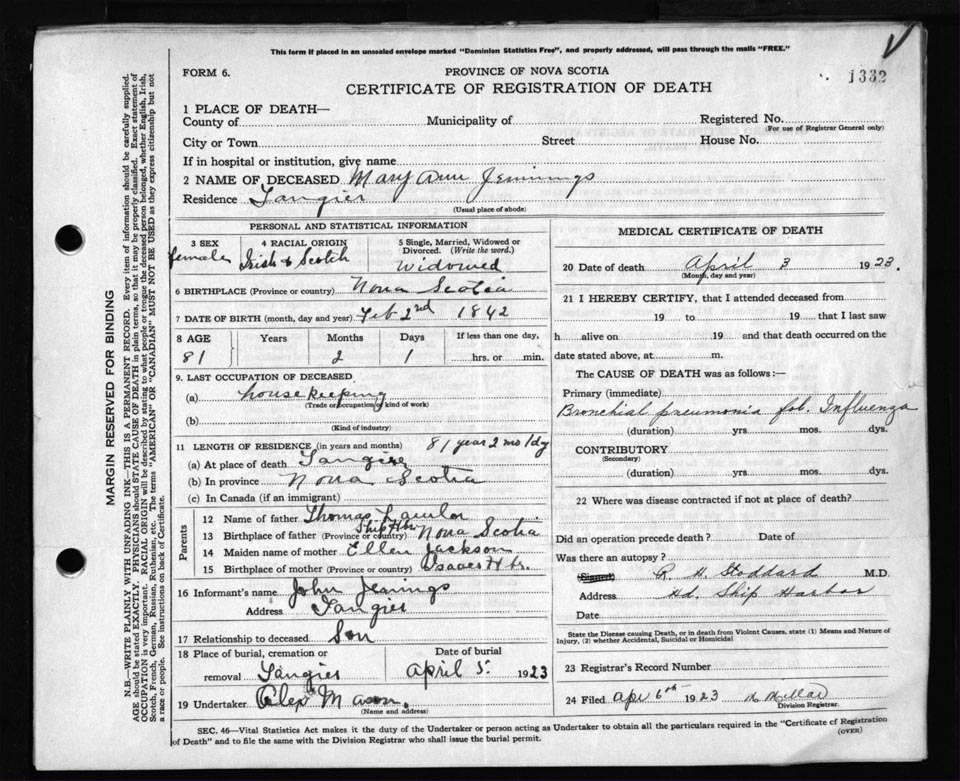 This form if placed in an unsealed envelope marked "Dominion Statistics Free", and properly addressed, will pass through the mails "FREE."
FORM 6.
PROVINCE OF NOVA SCOTIA
1332
CERTIFICATE OF REGISTRATION OF DEATH
1 PLACE OF DEATH—
County of Municipality of Registered No.
(For use of Registrar General only)
City or Town Street House No.
If in hospital or institution, give name
2 NAME OF DECEASED Mary Ann Jennings
Residence Tangier
(Usual place of abode)
PERSONAL AND STATISTICAL INFORMATION
3 SEX 4 RACIAL ORIGIN 5 Single, Married, Widowed or Divorced. (Write the word.)
female Irish & Scotch Widowed
6 BIRTHPLACE (Province or country) Nova Scotia
7 DATE OF BIRTH (month, day and year) Feb 2nd 1842
8 AGE Years Months Days If less than one day,
81 2 1 hrs. or min.
9. LAST OCCUPATION OF DECEASED
(a) housekeeping
(Trade or occupation) kind of work)
(b)
(Kind of industry)
11 LENGTH OF RESIDENCE (in years and months) 81 year 2 mo 1 dy
(a) At place of death Tangier
(b) In province Nova Scotia
(c) In Canada (if an immigrant)
Parents
12 Name of father Thomas Lawlor
13 Birthplace of father (Province or country) Ship Hbr Nova Scotia
14 Maiden name of mother Ellen Jackson
15 Birthplace of mother (Province or country) Isaacs Hbr.
16 Informant's name John Jennings
Address Tangier
17 Relationship to deceased Son
18 Place of burial, cremation or removal Tangier
Date of burial April 5. 1923
19 Undertaker Alex Mason.
(Name and address)
MEDICAL CERTIFICATE OF DEATH
20 Date of death April 3 1923.
(Month, day and year)
21 I HEREBY CERTIFY, that I attended deceased from
19 to 19 that I last saw
h alive on 19 and that death occurred on the
date stated above, at m.
The CAUSE OF DEATH was as follows:—
Primary (immediate)
Bronchial pneumonia fol. Influenza
(duration) yrs. mos. dys.
CONTRIBUTORY
(Secondary)
(duration) yrs. mos. dys.
22 Where was disease contracted if not at place of death?
Did an operation precede death? Date of
Was there an autopsy?
(Signed) R. H. Stoddard M.D.
Address Hd. Ship Harbor
Date
State the Disease causing Death, or in death from Violent Causes, state (1) Means and Nature of
Injury, (2) whether Accidental, Suicidal or Homicidal
23 Registrar's Record Number
24 Filed Apr 6th 1923
Division Registrar.
SEC. 46—Vital Statistics Act makes it the duty of the Undertaker or person acting as Undertaker to obtain all the particulars required in the "Certificate of Registration
of Death" and to file the same with the Division Registrar who shall issue the burial permit.
(OVER)
MARGIN RESERVED FOR BINDING
N.B.—WRITE PLAINLY WITH UNFADING INK—THIS IS A PERMANENT RECORD. Every item of information should be carefully supplied.
AGE should be stated EXACTLY. PHYSICIANS should STATE CAUSE OF DEATH in plain terms, so that it may be properly classified. Exact statement of
OCCUPATION is very important. RACIAL ORIGIN will be described by stating to what people or tongue the deceased person belonged, whether English, Irish,
Scotch, French, German, Russian, Ruthenian, etc. The terms "AMERICAN" OR "CANADIAN" MUST NOT BE USED as they express citizenship but not
a race or people. See instructions on back of Certificate.